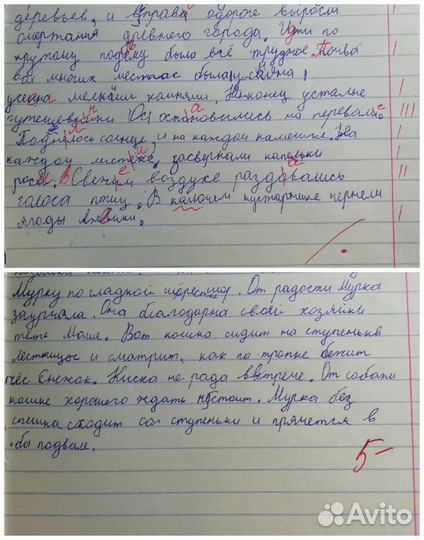 деревьев, и справа
дороге выросли
очертания древнего города. Идти по
крутому подъему было всё труднее. Почва
во многих местах была
усеяна мелкими камнями. Наконец усталые
путешественники остановились на перевале.
солнце, и на каждом камешке. На
каждом листеже. засверкали капельки
росы. В Свежем воздухе раздавались
голоса птиц. В колючем кустарнике чернели
ягоды ежевики.
Мурку по гладкой шёрстке. От радости Мурка
заурчала. Она благодарна своей хозяйке
тёте Маше. Вот кошка сидит на ступеньке
лестницы и смотрит, как по тропке бежит
пёс Снежок. Киска не рада встрече. От собаки
кошке хорошего ждать не стоит. Мурка без
спешки сходит со ступеньки и прячется в
подвале.
5-
Avito